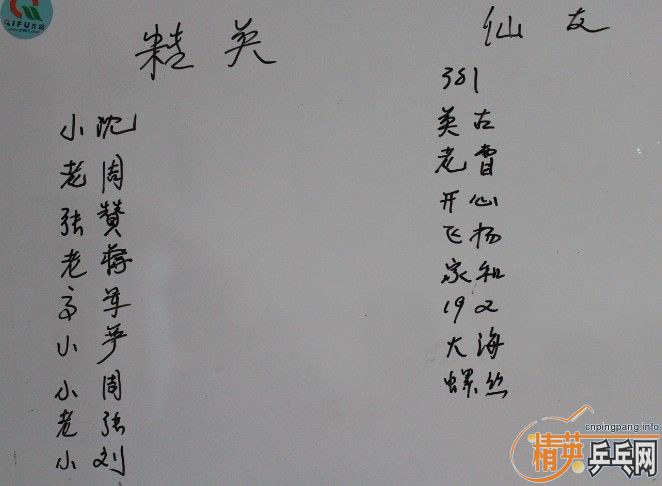 QIFU齐福
精英
小沈
老周
张赞
老蒋
高军
小严
小周
老张
小刘
仙友
381
英左
老曹
开心
飞扬
家和
192
大海
螺丝
cnpingpang.info
精英乒乓网